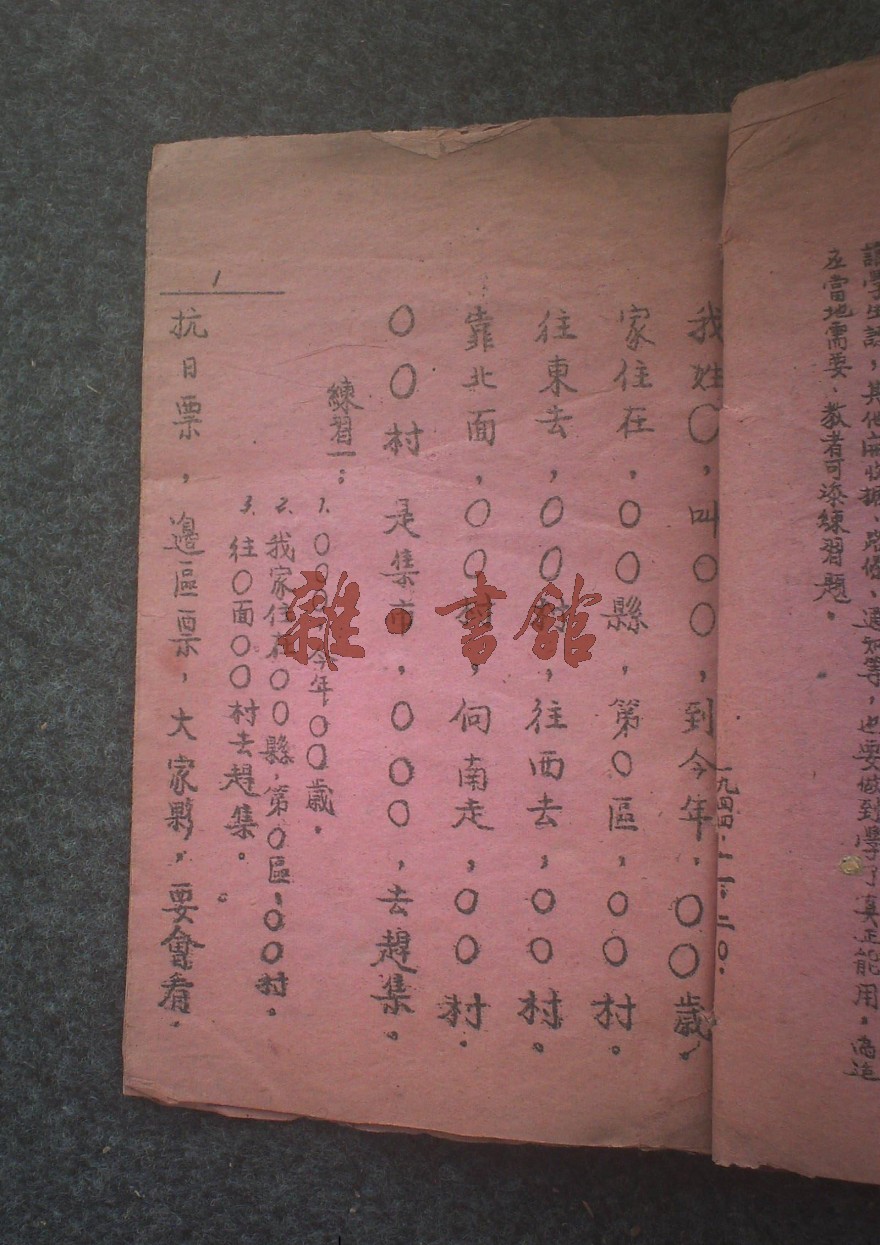 讓學生試,其他開收據、路條、通知等,也要做到學了真正能用。為適
应當地需要、教者可添練習題。
一九四四.一一.二〇.
我姓〇,叫〇〇,到今年,〇〇歲。
家住在,〇〇縣,第〇區,〇〇村。
往東去,〇〇村,往西去,〇〇村。
靠北面,〇〇村,向南走,〇〇村。
〇〇村 是集市,〇〇〇,去趕集。
練習一:
1. 〇〇〇,今年〇〇歲.
2. 我家住在〇〇縣,第〇區,〇〇村。
3. 往〇面〇〇村去趕集。
1
抗日票,邊區票,大家夥,要會看.
雜·書館